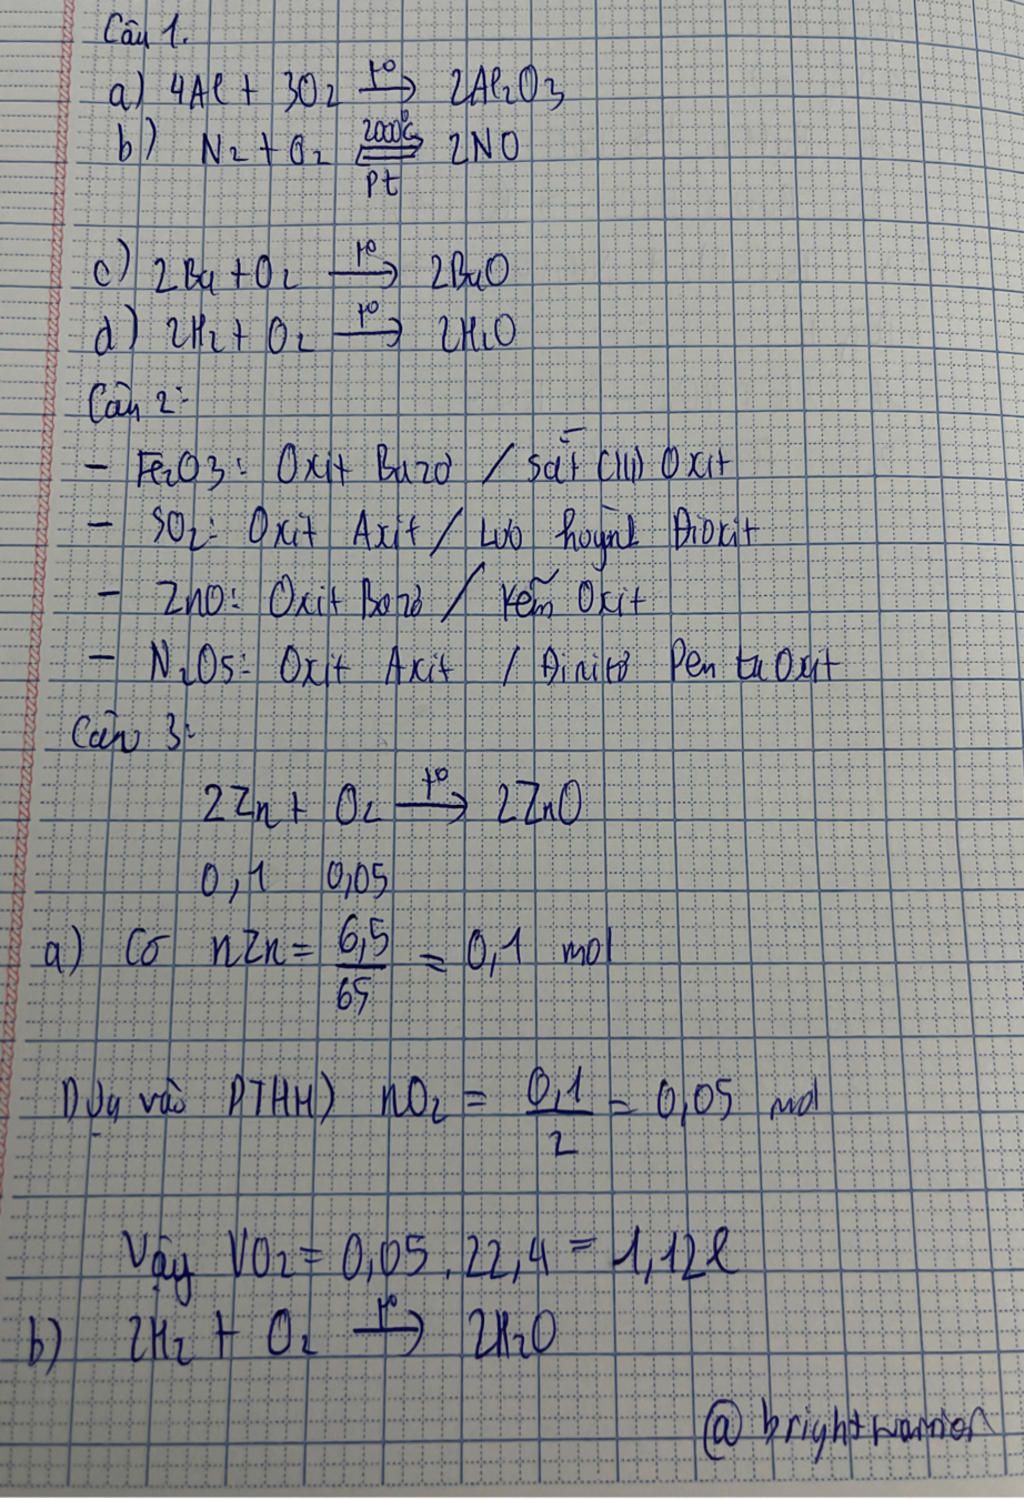 Câu 1.
a) 4Al + 3O2 t° → 2Al2O3
b) N2 + O2 2000°C ⇌ Pt 2NO
c) 2Ba + O2 t° → 2BaO
d) 2H2 + O2 t° → 2H2O
Câu 2:
- Fe2O3: Oxit Bazơ / Sắt (III) Oxit
- SO2: Oxit Axit / Lưu huỳnh Đioxit
- ZnO: Oxit Bazơ / Kẽm Oxit
- N2O5: Oxit Axit / Đinitơ Pen ta Oxit
Câu 3:
2Zn + O2 t° → 2ZnO
0,1 0,05
a) Có nZn = 6,5/65 = 0,1 mol
Dựa vào PTHH) nO2 = 0,1/2 = 0,05 mol
Vậy VO2 = 0,05 . 22,4 = 1,12l
b) 2H2 + O2 t° → 2H2O
@brightwarrior